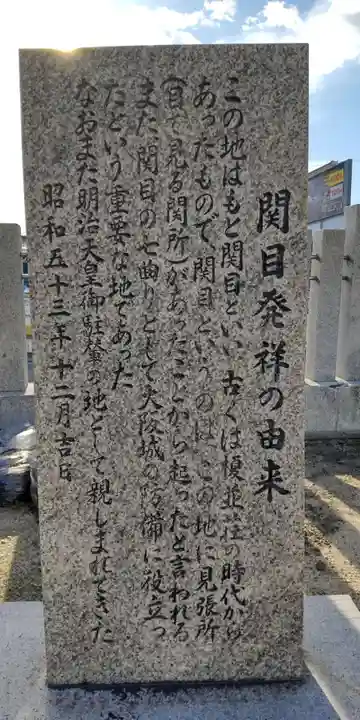 関目発祥の由来
この地はもと関目といい 古くは榎並荘の時代から
あったもので 関目というのは この地に見張所
(目で見る関所)があったことから起ったと言われる
また 関目の七曲りとして大阪城の防備に役立っ
たという重要な地であった
なおまた明治天皇御駐輦の地として親しまれてきた
昭和五十三年十二月吉日